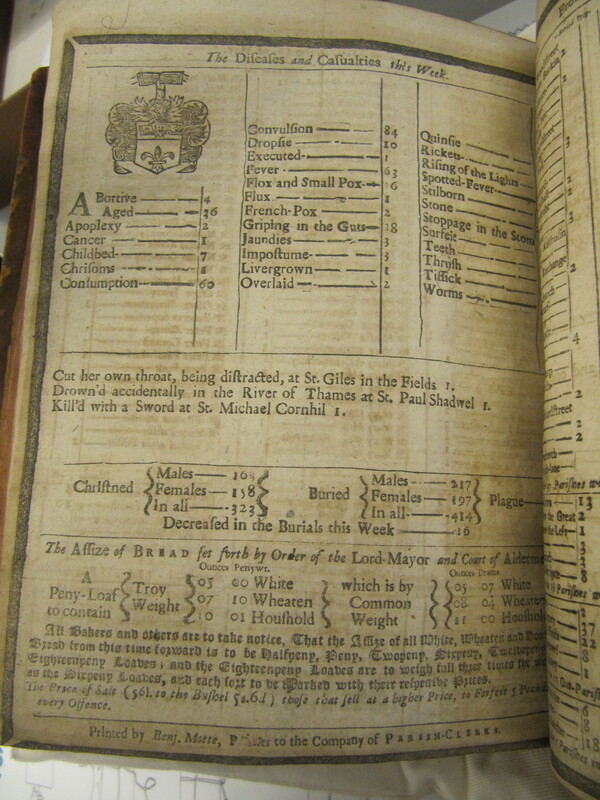 The Diseases and Casualties this Week.
A Bortive 4
Aged 36
Apoplexy 2
Cancer 1
Childbed 7
Chrisoms
Consumption 60
Convulsion 84
Dropsie 10
Executed 1
Fever 63
Flox and Small Pox 6
Flux 1
French-Pox 2
Griping in the Guts 28
Jaundies 3
Impostume 3
Livergrown 1
Overlaid 2
Quinsie
Rickets
Rising of the Lights
Spotted-Fever
Stilborn
Stone
Stoppage in the Stom
Surfeit
Teeth
Thrush
Tissick
Worms
Cut her own throat, being distracted, at St. Giles in the Fields 1.
Drown'd accidentally in the River of Thames at St. Paul Shadwel 1.
Kill'd with a Sword at St. Michael Cornhil 1.
Christned Males 165 Females 158 In all 323 Buried Males 217 Females 197 In all 414 Plague
Decreased in the Burials this Week 16
The Assize of BREAD set forth by Order of the Lord-Mayor and Court of Alderme
Ounces Penywt. Ounces Drams
A Peny-Loaf to contain Troy Weight which is by Common Weight
05 00 White 05 07 White
07 10 Wheaten 08 04 Wheaten
10 01 Houshold 11 00 Houshold
All Bakers and others are to take notice, That the Assize of all White, Wheaten and
Bread from this time forward is to be Halfpeny, Peny, Twopeny, Sixpeny, Twelvepeny
Eighteenpeny Loaves; and the Eighteenpeny Loaves are to weigh full three times the
as the Sixpeny Loaves, and each sort to be Marked with their respective Prices.
The Price of Salt (56 l. to the Bushel 5s. 6d) those that sell at a higher Price, to Forfeit 5 Pound
every Offence.
Printed by Benj. Motte, to the Company of PARISH-CLERKS.